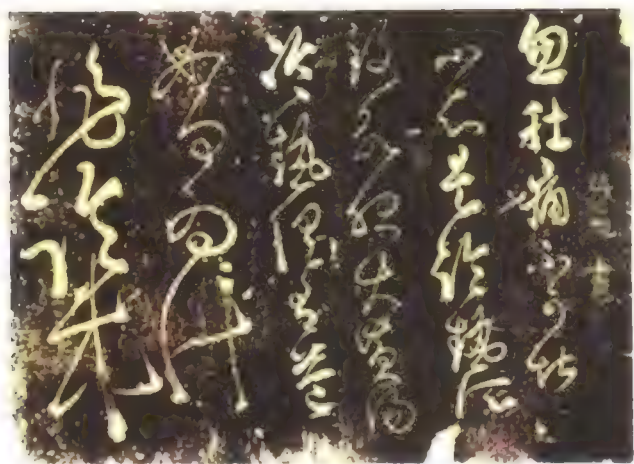 忽肚痛不可堪
不知是冷熱所
致欲服大黃湯
冷熱俱有益
如何爲計